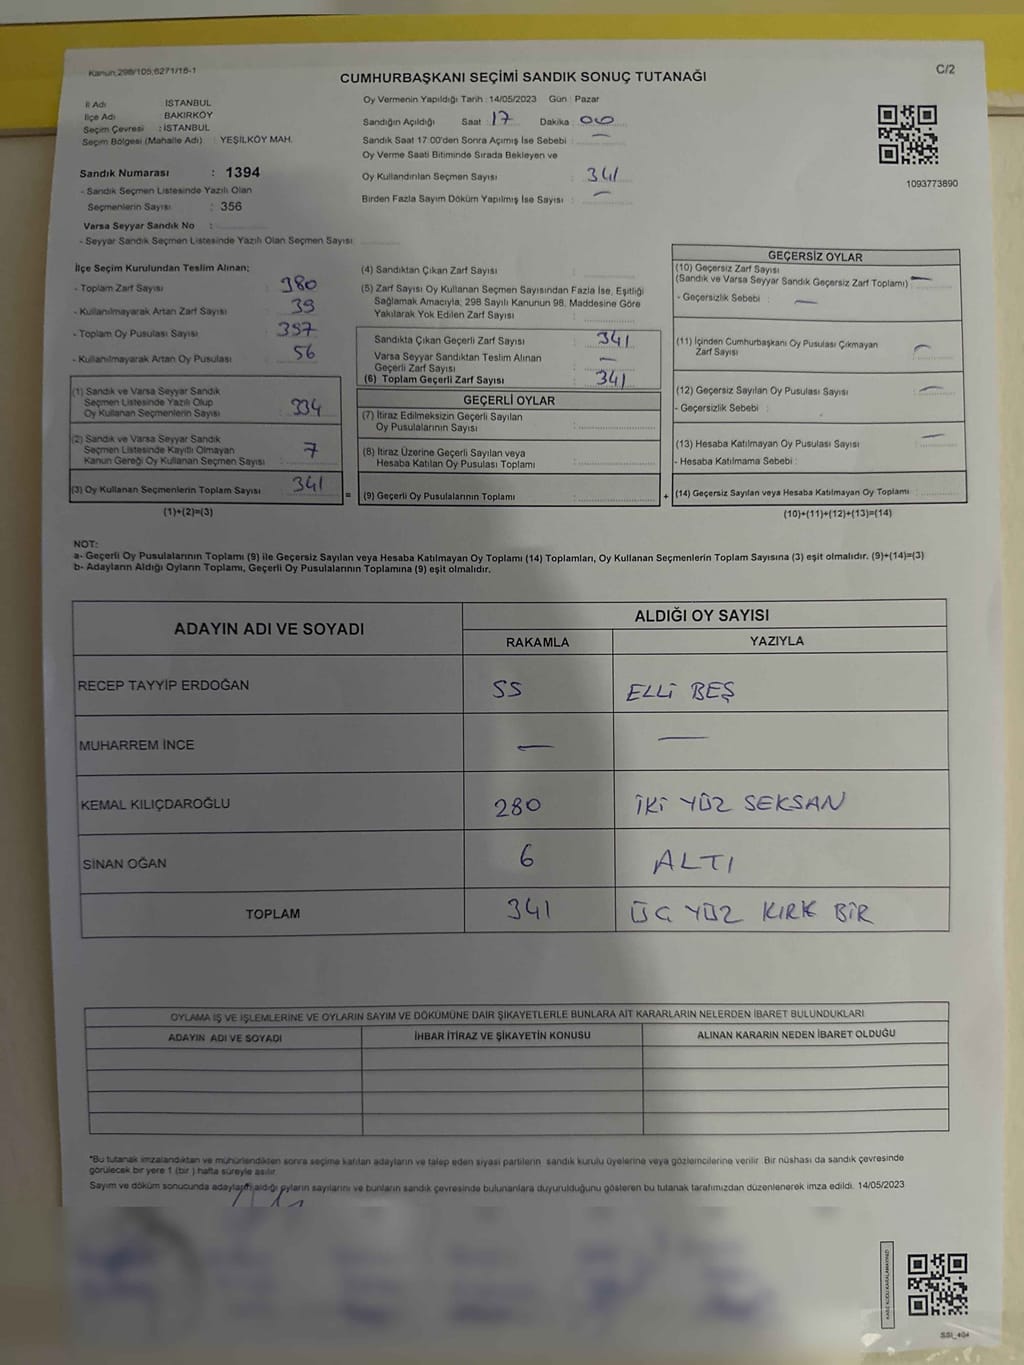 Kanun:298/105;6271/16-1
C/2
CUMHURBAŞKANI SEÇİMİ SANDIK SONUÇ TUTANAĞI
İl Adı : İSTANBUL
İlçe Adı : BAKIRKÖY
Seçim Çevresi : İSTANBUL
Seçim Bölgesi (Mahalle Adı) : YEŞİLKÖY MAH.
Sandık Numarası : 1394
- Sandık Seçmen Listesinde Yazılı Olan
Seçmenlerin Sayısı : 356
Varsa Seyyar Sandık No :
- Seyyar Sandık Seçmen Listesinde Yazılı Olan Seçmen Sayısı:
Oy Vermenin Yapıldığı Tarih : 14/05/2023 Gün : Pazar
Sandığın Açıldığı Saat : 17 Dakika : 00
Sandık Saat 17:00'den Sonra Açımış İse Sebebi : —
Oy Verme Saati Bitiminde Sırada Bekleyen ve
Oy Kullandırılan Seçmen Sayısı : 341
Birden Fazla Sayım Döküm Yapılmış İse Sayısı : —
1093773890
İlçe Seçim Kurulundan Teslim Alınan;
- Toplam Zarf Sayısı : 380
- Kullanılmayarak Artan Zarf Sayısı : 39
- Toplam Oy Pusulası Sayısı : 397
- Kullanılmayarak Artan Oy Pusulası : 56
(1) Sandık ve Varsa Seyyar Sandık
Seçmen Listesinde Yazılı Olup
Oy Kullanan Seçmenlerin Sayısı : 334
(2) Sandık ve Varsa Seyyar Sandık
Seçmen Listesinde Kayıtlı Olmayan
Kanun Gereği Oy Kullanan Seçmen Sayısı : 7
(3) Oy Kullanan Seçmenlerin Toplam Sayısı : 341
(1)+(2)=(3)
(4) Sandıktan Çıkan Zarf Sayısı :
(5) Zarf Sayısı Oy Kullanan Seçmen Sayısından Fazla İse, Eşitliği
Sağlamak Amacıyla; 298 Sayılı Kanunun 98. Maddesine Göre
Yakılarak Yok Edilen Zarf Sayısı :
Sandıkta Çıkan Geçerli Zarf Sayısı : 341
Varsa Seyyar Sandıktan Teslim Alınan
Geçerli Zarf Sayısı : —
(6) Toplam Geçerli Zarf Sayısı : 341
GEÇERLİ OYLAR
(7) İtiraz Edilmeksizin Geçerli Sayılan
Oy Pusulalarının Sayısı :
(8) İtiraz Üzerine Geçerli Sayılan veya
Hesaba Katılan Oy Pusulası Toplamı :
= (9) Geçerli Oy Pusulalarının Toplamı :
GEÇERSİZ OYLAR
(10) Geçersiz Zarf Sayısı
(Sandık ve Varsa Seyyar Sandık Geçersiz Zarf Toplamı) : —
- Geçersizlik Sebebi : —
(11) İçinden Cumhurbaşkanı Oy Pusulası Çıkmayan
Zarf Sayısı : —
(12) Geçersiz Sayılan Oy Pusulası Sayısı : —
- Geçersizlik Sebebi :
(13) Hesaba Katılmayan Oy Pusulası Sayısı : —
- Hesaba Katılmama Sebebi :
+ (14) Geçersiz Sayılan veya Hesaba Katılmayan Oy Toplamı :
(10)+(11)+(12)+(13)=(14)
NOT:
a- Geçerli Oy Pusulalarının Toplamı (9) ile Geçersiz Sayılan veya Hesaba Katılmayan Oy Toplamı (14) Toplamları, Oy Kullanan Seçmenlerin Toplam Sayısına (3) eşit olmalıdır. (9)+(14)=(3)
b- Adayların Aldığı Oyların Toplamı, Geçerli Oy Pusulalarının Toplamına (9) eşit olmalıdır.
ADAYIN ADI VE SOYADI
ALDIĞI OY SAYISI
RAKAMLA YAZIYLA
RECEP TAYYİP ERDOĞAN 55 ELLİ BEŞ
MUHARREM İNCE — —
KEMAL KILIÇDAROĞLU 280 İKİ YÜZ SEKSAN
SİNAN OĞAN 6 ALTI
TOPLAM 341 ÜÇ YÜZ KIRK BİR
OYLAMA İŞ VE İŞLEMLERİNE VE OYLARIN SAYIM VE DÖKÜMÜNE DAİR ŞİKAYETLERLE BUNLARA AİT KARARLARIN NELERDEN İBARET BULUNDUKLARI
ADAYIN ADI VE SOYADI İHBAR İTİRAZ VE ŞİKAYETİN KONUSU ALINAN KARARIN NEDEN İBARET OLDUĞU
*Bu tutanak imzalandıktan ve mühürlendikten sonra seçime katılan adayların ve talep eden siyasi partilerin sandık kurulu üyelerine veya gözlemcilerine verilir. Bir nüshası da sandık çevresinde
görülecek bir yere 1 (bir ) hafta süreyle asılır.
Sayım ve döküm sonucunda adayların aldığı oyların sayılarını ve bunların sandık çevresinde bulunanlara duyurulduğunu gösteren bu tutanak tarafımızdan düzenlenerek imza edildi. 14/05/2023
SSI_404